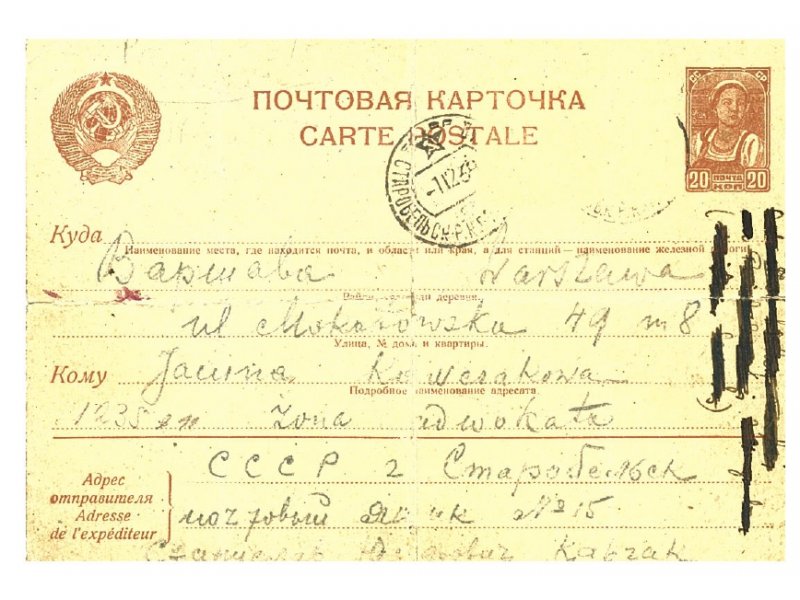 ПОЧТОВАЯ КАРТОЧКА
CARTE POSTALE
СССР
20 ПОЧТА КОП 20
СТАРОБЕЛЬСК
-1 12
Куда
Наименование места, где находится почта, и области или края, а для станций — наименование железной дороги
Варшава Warszawa
ul Mokotowska 49 m 8
Улица, № дома и квартиры.
Кому Janina
Подробное наименование адресата.
żona adwokata
СССР г Старобельск
Адрес отправителя
Adresse de l'expéditeur
почтовый ящик № 15
Станислав